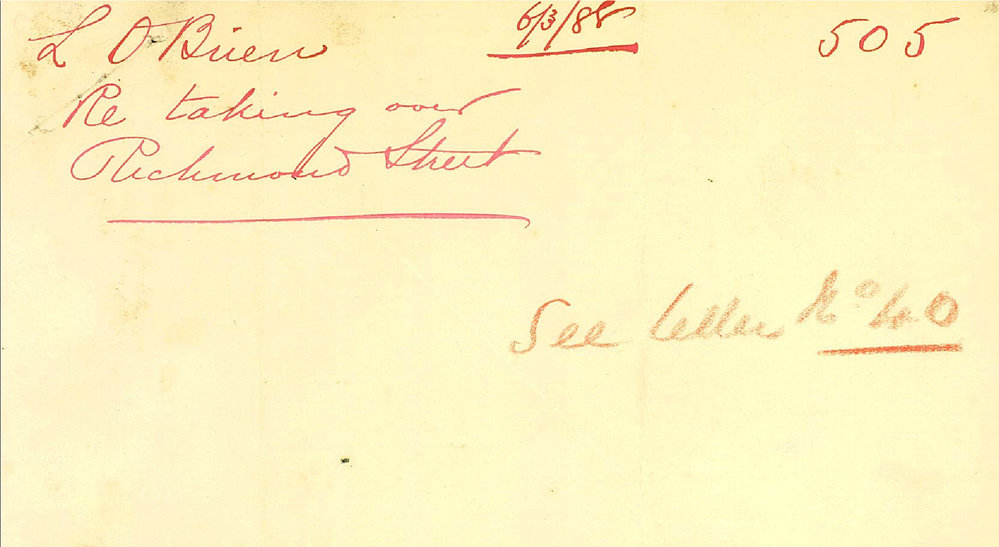 L O'Brien 6/3/88 505
Re taking over
Richmond Street
See letter No 40